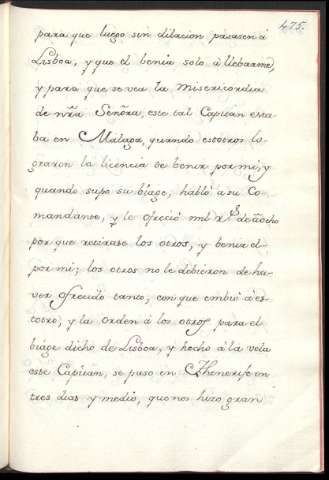 475.
para que luego sin dilacion pasasen á
Lisboa, y que el benia solo á llebarme,
y para que se vea la Misericordia
de nrã Señora, este tal Capitan esta-
ba en Malaga, quando estotros lo-
graron la licencia de benir por mi, y
quando supo su biage, habló á su Co-
mandante, y le ofreció mil ps. de á ocho
por que retirase los otros, y benir el
por mi; los otros no le debieron de ha-
ver ofrecido tanto, con que embió á es-
totro, y la orden á los otros para el
biage dicho de Lisboa, y hecho á la vela
este Capitan, se puso en Thenerife en
tres dias y medio, que nos hizo gran